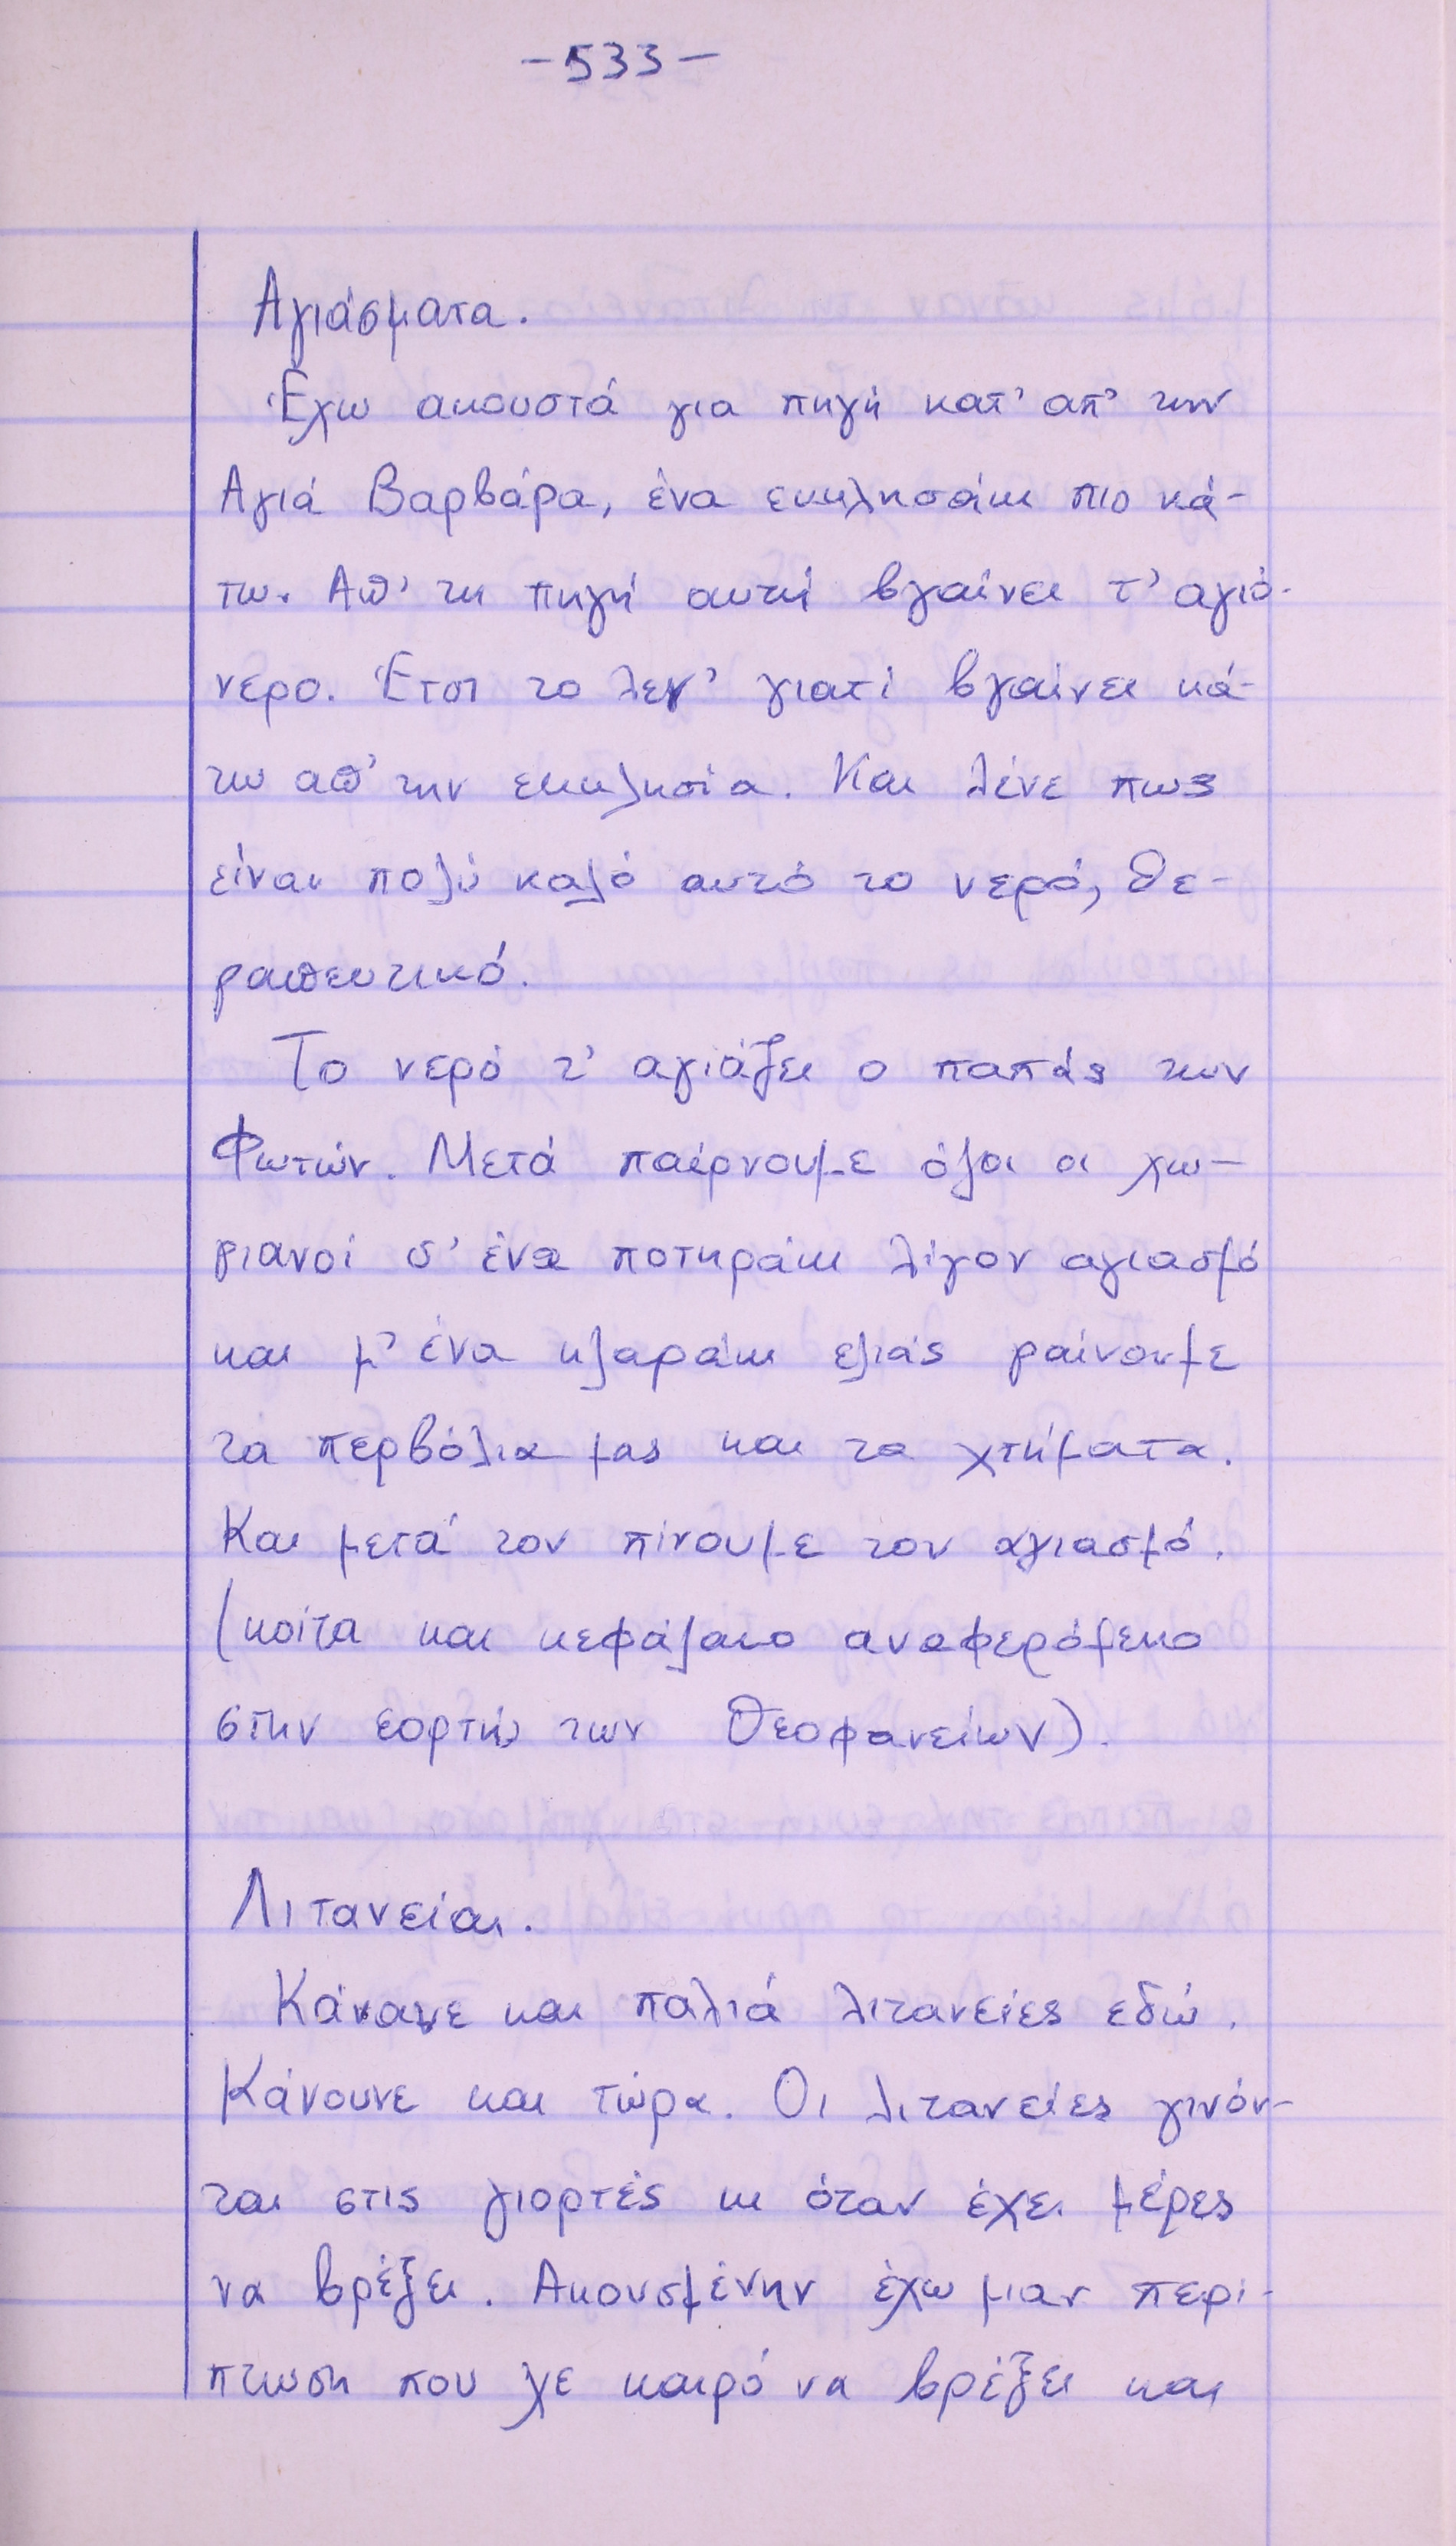 -533-
Αγιάσματα.
Έχω ακουστά για πηγή κατ' απ' την
Αγιά Βαρβάρα, ένα εκκλησάκι πιο κά-
τω. Απ' τη πηγή αυτή βγαίνει τ' αγιό-
νερο. Έτσι το λεν' γιατί βγαίνει κά-
τω απ' την εκκλησία. Και λένε πως
είναι πολύ καλό αυτό το νερό, θε-
ραπευτικό.
Το νερό τ' αγιάζει ο παπάς των
Φωτών. Μετά παίρνουμε όλοι οι χω-
ριανοί σ' ένα ποτηράκι λίγον αγιασμό
και μ' ένα κλαράκι ελιάς ραίνουμε
τα περβόλια μας και τα χτήματα.
Και μετά τον πίνουμε τον αγιασμό.
(κοίτα και κεφάλαιο αναφερόμενο
στην εορτή των Θεοφανείων).
Λιτανείαι.
Κάνανε και παλιά λιτανείες εδώ.
Κάνουνε και τώρα. Οι λιτανείες γινόν-
ται στις γιορτές κι όταν έχει μέρες
να βρέξει. Ακουσμένην έχω μιαν περί-
πτωση που χε καιρό να βρέξει και